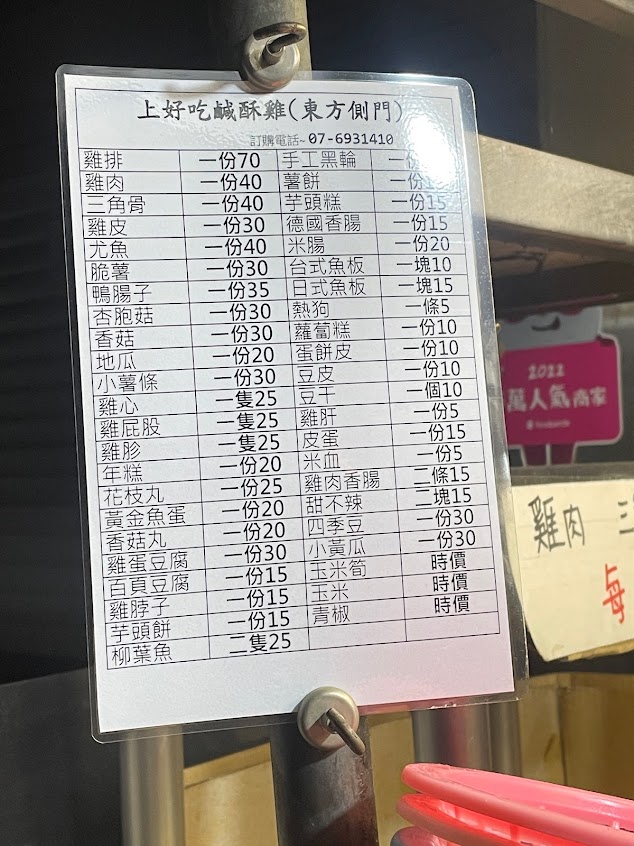 上好吃鹹酥雞(東方側門)
訂購電話~07-6931410
雞排 一份70 手工黑輪
雞肉 一份40 薯餅
三角骨 一份40 芋頭糕 一份15
雞皮 一份30 德國香腸 一份15
尤魚 一份40 米腸 一份20
脆薯 一份30 台式魚板 一塊10
鴨腸子 一份35 日式魚板 一塊15
杏胞菇 一份30 熱狗 一條5
香菇 一份30 蘿蔔糕 一份10
地瓜 一份20 蛋餅皮 一份10
小薯條 一份30 豆皮 一份10
雞心 一隻25 豆干 一個10
雞屁股 一隻25 雞肝 一份5
雞胗 一隻25 皮蛋 一份15
年糕 一份20 米血 一份5
花枝丸 一份25 雞肉香腸 二條15
黃金魚蛋 一份20 甜不辣 二塊15
香菇丸 一份20 四季豆 一份30
雞蛋豆腐 一份30 小黃瓜 一份30
百頁豆腐 一份15 玉米筍 時價
雞脖子 一份15 玉米 時價
芋頭餅 一份15 青椒 時價
柳葉魚 二隻25
2022
萬人氣商家
foodpanda
雞肉 三
每